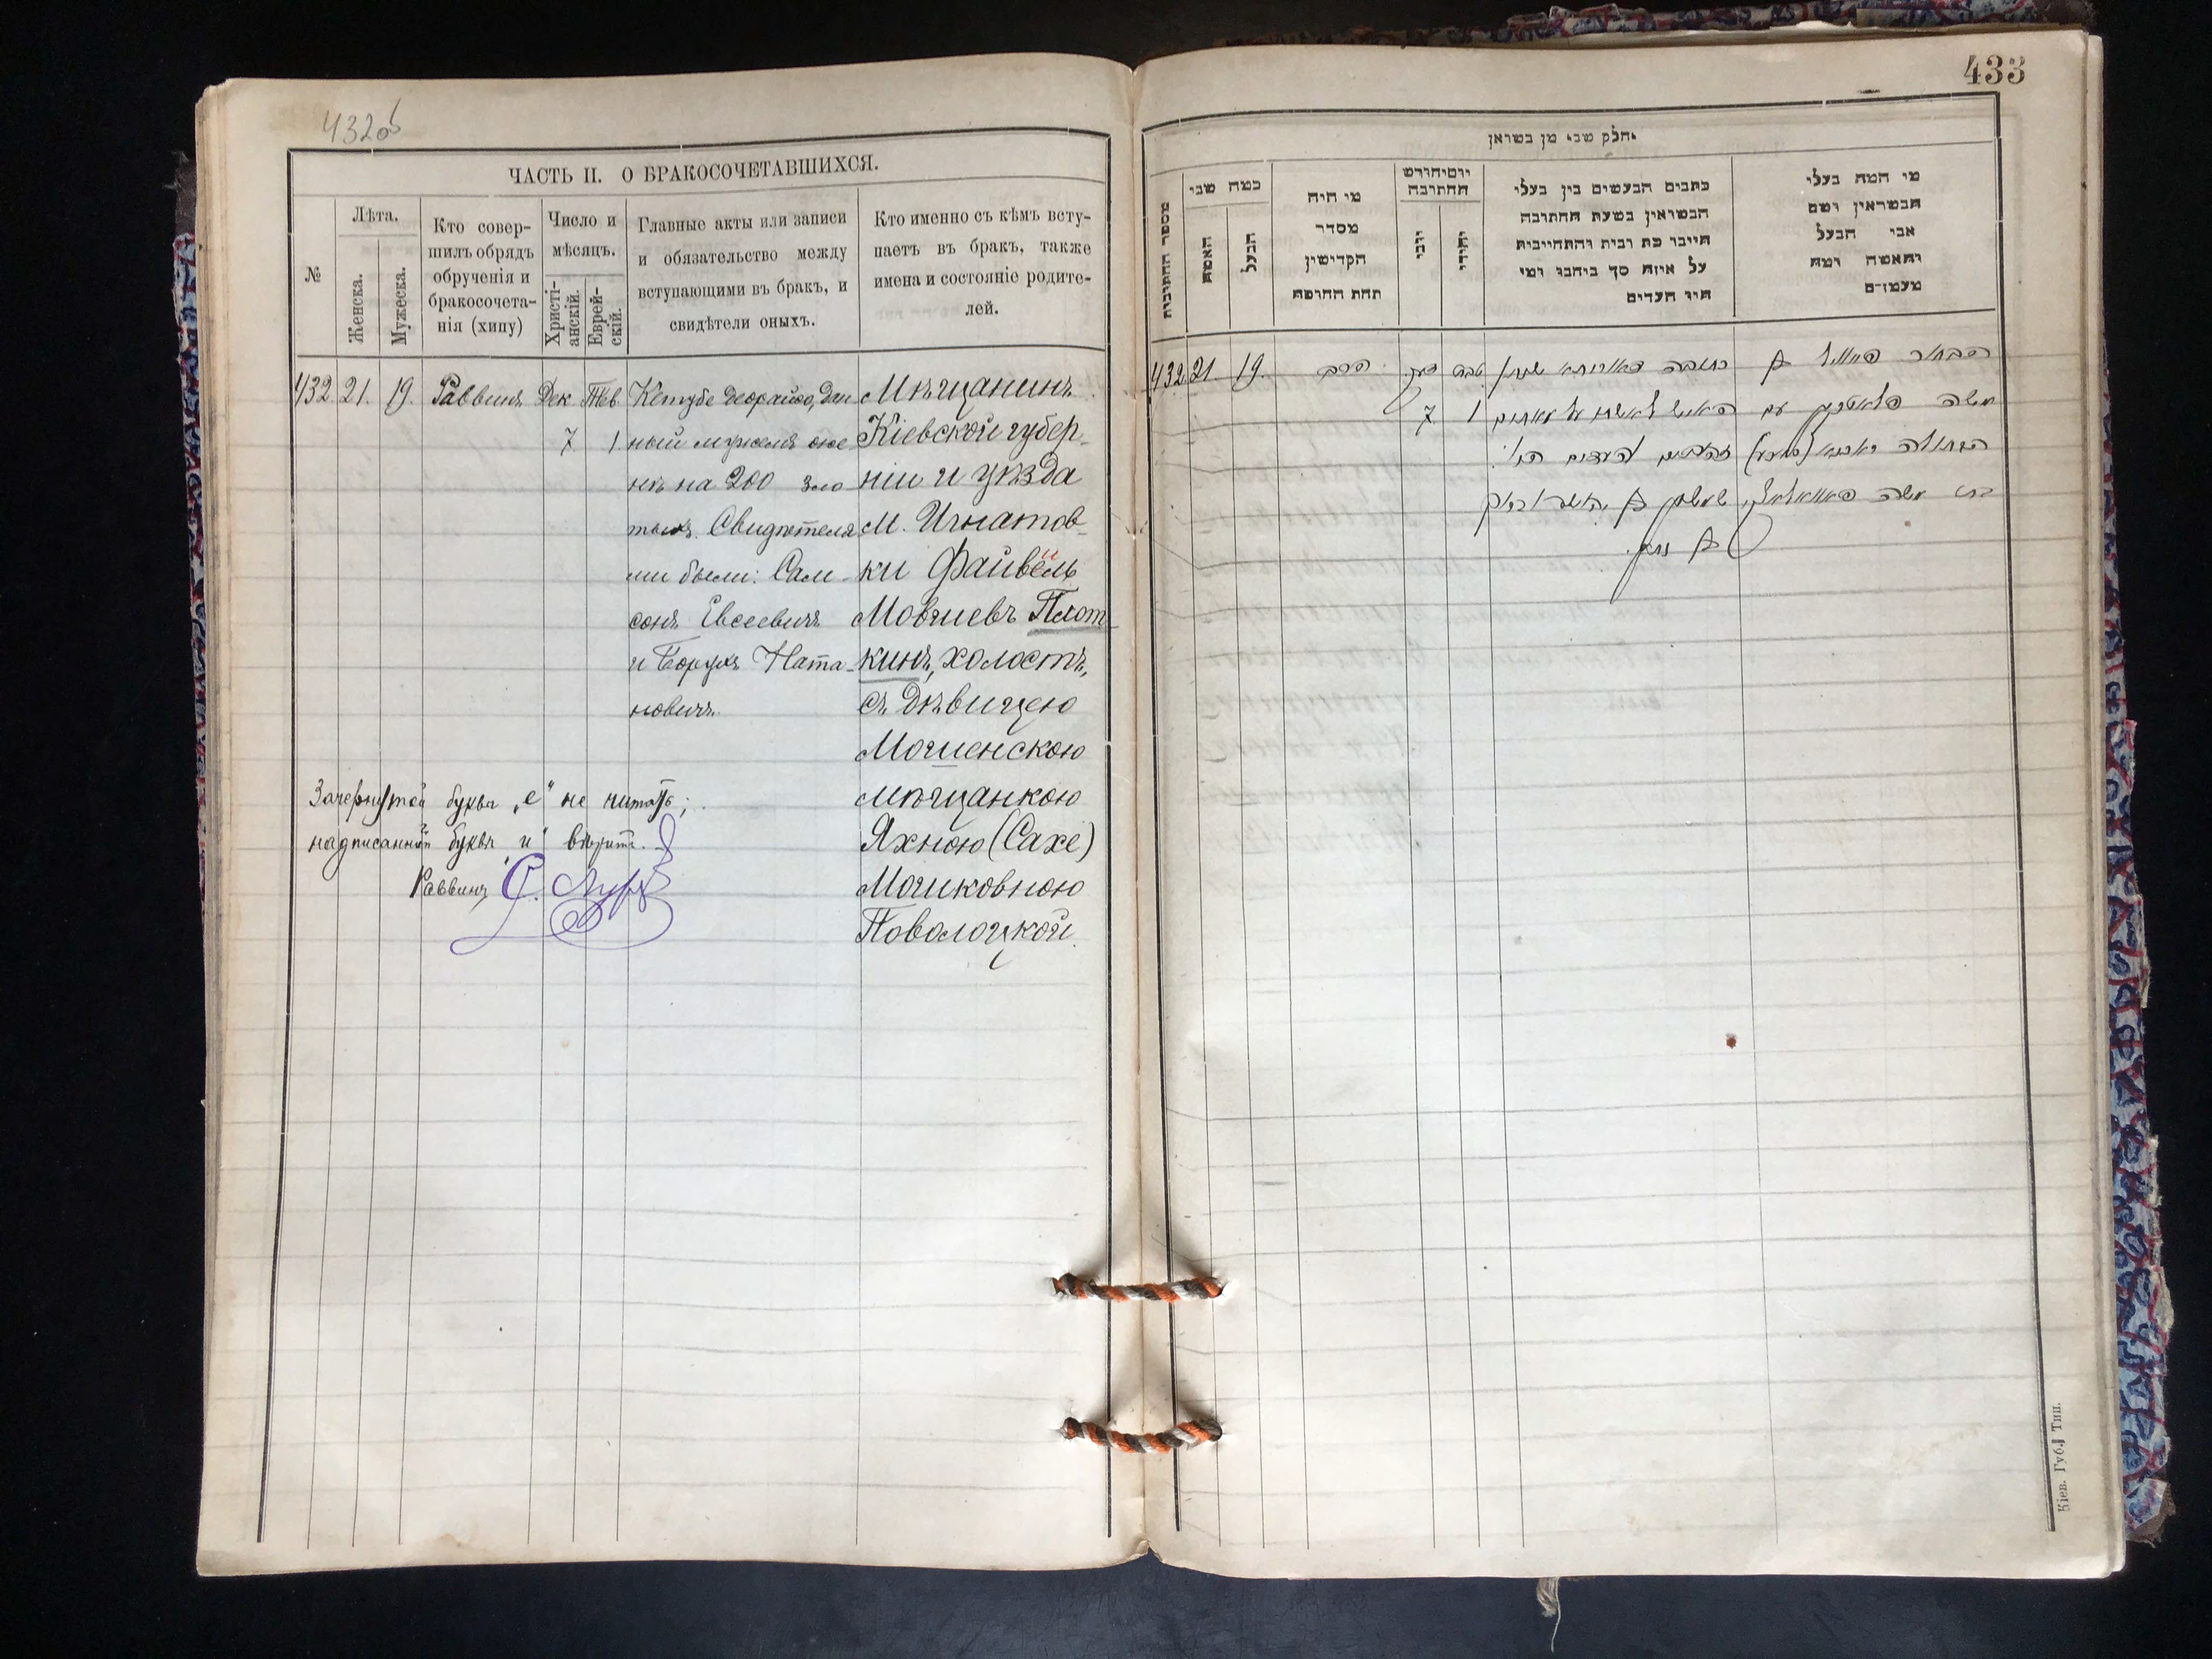 432об
ЧАСТЬ II. О БРАКОСОЧЕТАВШИХСЯ.
№
Лѣта.
Женска.
Мужеска.
Кто совер-
шилъ обрядъ
обрученія и
бракосочета-
нія (хипу)
Число и
мѣсяцъ.
Христі-
анскій.
Еврей-
скій.
Главные акты или записи
и обязательство между
вступающими въ бракъ, и
свидѣтели оныхъ.
Кто именно съ кѣмъ всту-
паетъ въ бракъ, также
имена и состояніе родите-
лей.
432
21.
19.
Раввинъ
Дек
7
Тев.
1.
Кетубе деорайсо, дан
ный мужемъ оже
на 200 зло
тыхъ. Свидѣтеля
ми были: Сам-
сонъ Евсеевичъ
и Борухъ Ната-
новичъ.
Мѣщанинъ
Кіевской губер-
ніи и уѣзда
м. Игнатов-
ки Файвель
и
Мовшевъ Плот-
кинъ, холостъ,
съ дѣвицею
Мошенскою
мѣщанкою
Яхною (Сахе)
Мошковною
Поволоцкой.
Зачеркнутой буква „е" не читать;
надписанной букв „и" вѣрить.
Раввинъ С.
433
חלק שני מן בשואן
מספר החתונות
כמה שני
האשה
הבעל
מי היה
מסדר
הקדישין
תחת החופה
יום וחודש
החתונה
יוני
יהודי
כתבים הנעשים בין בעלי
הנשואין בשעת החתונה
על איזה סך
העדים
מי המה בעלי
הנשואין ושם
אבי הבעל
והאשה ומה
מעמדם
432
21
19.
הרב.
דעק.
7
טבת
1
כתובה דאורייתא
האיש לאשתו על מאתים
זהובים והעדים הי'
שמשון
הבחור
משה פלאטקין עם
הבתולה
בת משה
Кіев. Губ. Тип.